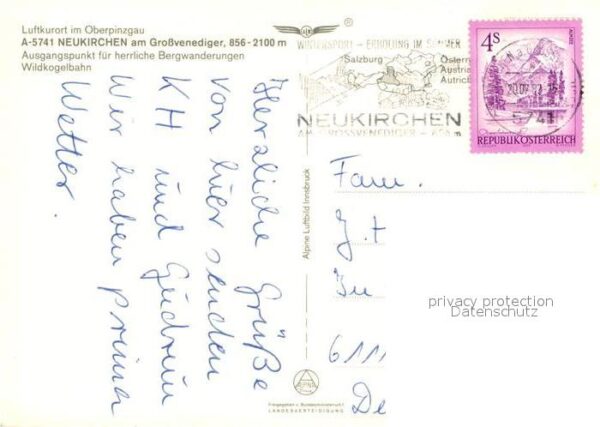 Luftkurort im Oberpinzgau
A-5741 NEUKIRCHEN am Großvenediger, 856-2100 m
Ausgangspunkt für herrliche Bergwanderungen
Wildkogelbahn
®
WINTERSPORT - ERHOLUNG IM SOMMER
Salzburg
Österr
Austria
Autrich
NEUKIRCHEN
AM GROSSVENEDIGER - 856 m
4s
REPUBLIK ÖSTERREICH
5741
Herzliche Grüße
von hier senden
KH und Gudrun
Wir haben prima
Wetter.
Alpine Luftbild Innsbruck
Fam.
J. +
6111
De
privacy protection
Datenschutz
Freigegeben v. Bundesministerium f.
LANDESVERTEIDIGUNG